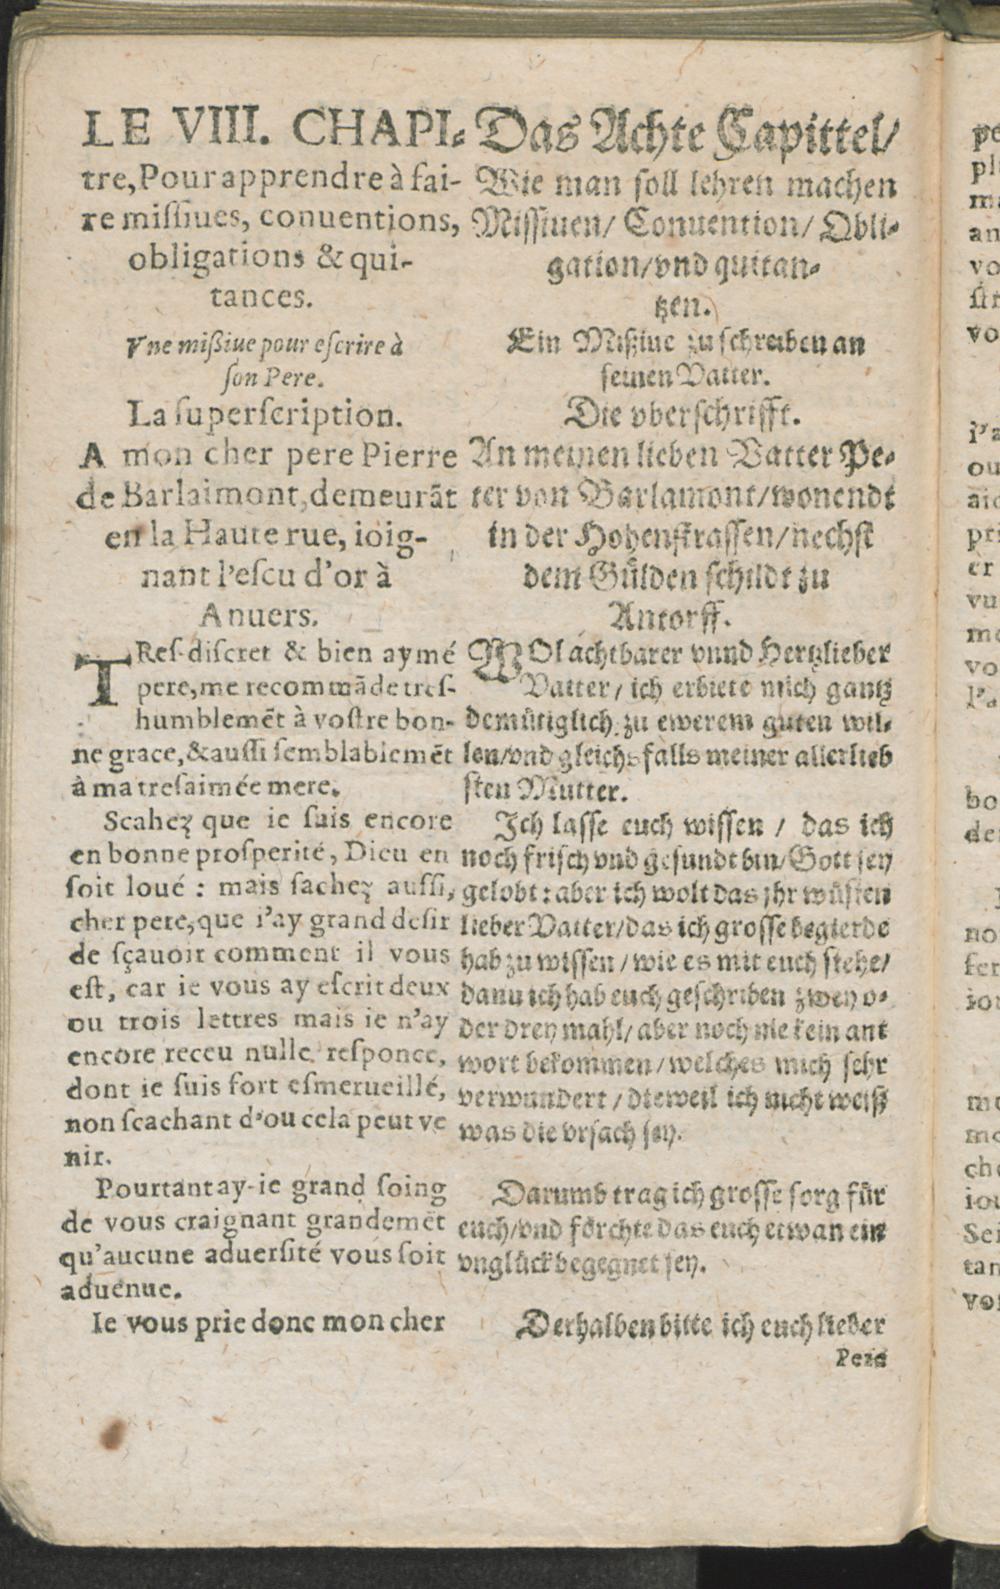 LE VIII. CHAPI-
tre, Pour apprendre à fai-
re missiues, conuentions,
obligations & qui-
tances.
Vne mißiue pour escrire à
son Pere.
La superscription.
A mon cher pere Pierre
de Barlaimont, demeurãt
en la Haute rue, ioig-
nant l'escu d'or à
Anuers.
TRes-discret & bien aymé
pere, me recommãde tres-
humblemẽt à vostre bon-
ne grace, & aussi semblablemẽt
à ma tresaimée mere.
Scahez que ie suis encore
en bonne prosperité, Dieu en
soit loué : mais sachez aussi,
cher pere, que i'ay grand desir
de sçauoir comment il vous
est, car ie vous ay escrit deux
ou trois lettres mais ie n'ay
encore receu nulle responce,
dont ie suis fort esmerueillé,
non scachant d'ou cela peut ve
nir.
Pourtant ay-ie grand soing
de vous craignant grandemẽt
qu'aucune aduersité vous soit
aduenue.
Ie vous prie donc mon cher
Das Achte Capittel/
Wie man soll lehren machen
Missiuen/ Conuention/ Obli-
gation/vnd quitan-
tzen.
Ein Mißiue zu schreiben an
seinen Vatter.
Die vberschrifft.
An meinen lieben Vatter Pe-
ter von Barlamont/wonendt
in der Hohenstrassen/nechst
dem Gülden schildt zu
Antorff.
WOl achtbarer vnnd Hertzlieber
Vatter/ ich erbiete mich gantz
demütiglich zu ewerem guten wil-
len/vnd gleichsfalls meiner allerlieb
sten Mutter.
Ich lasse euch wissen / das ich
noch frisch vnd gesundt bin/Gott sey
gelobt: aber ich wolt das jhr wüsten
lieber Vatter/das ich grosse begierde
hab zu wissen / wie es mit euch stehe/
dann ich hab euch geschriben zwey o-
der drey mahl/ aber noch nie kein ant
wort bekommen/welches mich sehr
verwundert / dieweil ich nicht weiß
was die vrsach sey.
Darumb trag ich grosse sorg für
euch/vnd förchte das euch etwan ein
vnglück begegnet sey.
Derhalben bitte ich euch lieber
Pere